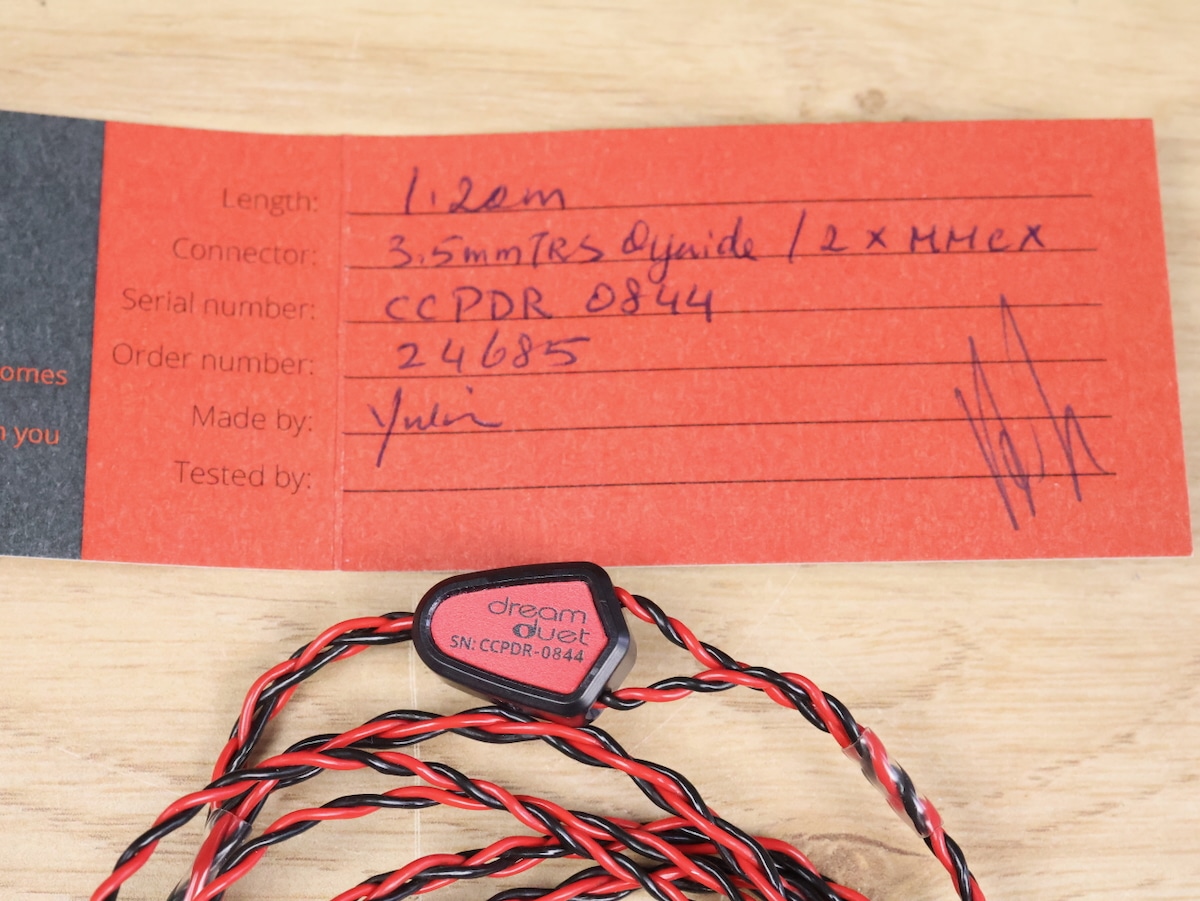 Length: 1.20m
Connector: 3.5mm TRS Oyaide / 2 x MMCX
Serial number: CCPDR 0844
omes
Order number: 24685
n you
Made by: Yulin
Tested by:
dream
duet
SN: CCPDR-0844